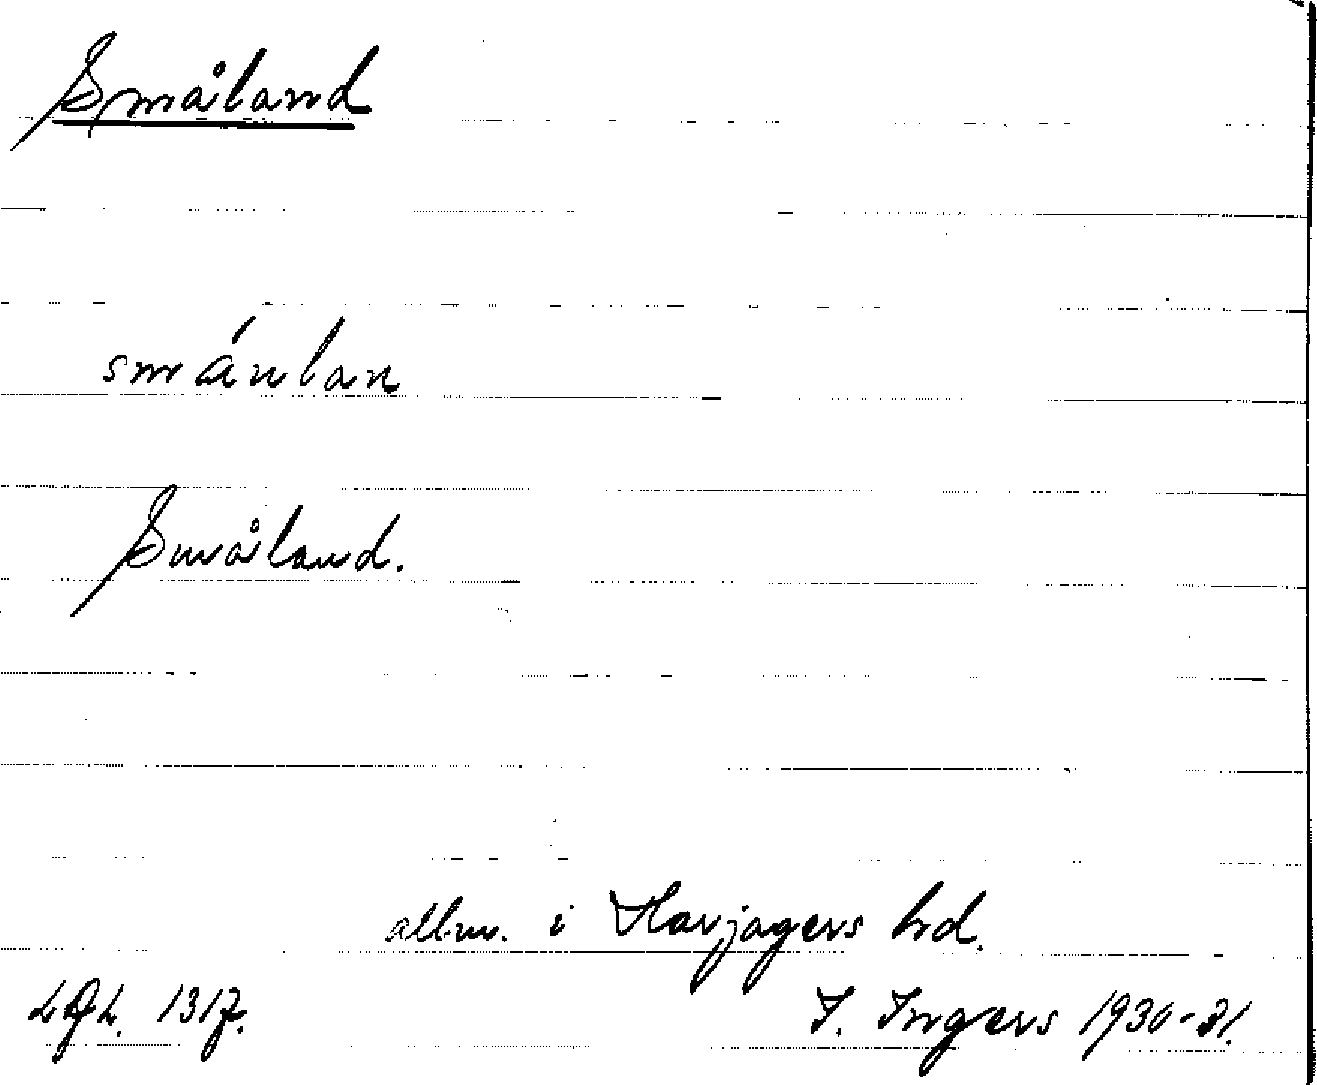 Småland
småulan
Småland.
allm. i Harjagers hd.
I. Ingers 1930-31.